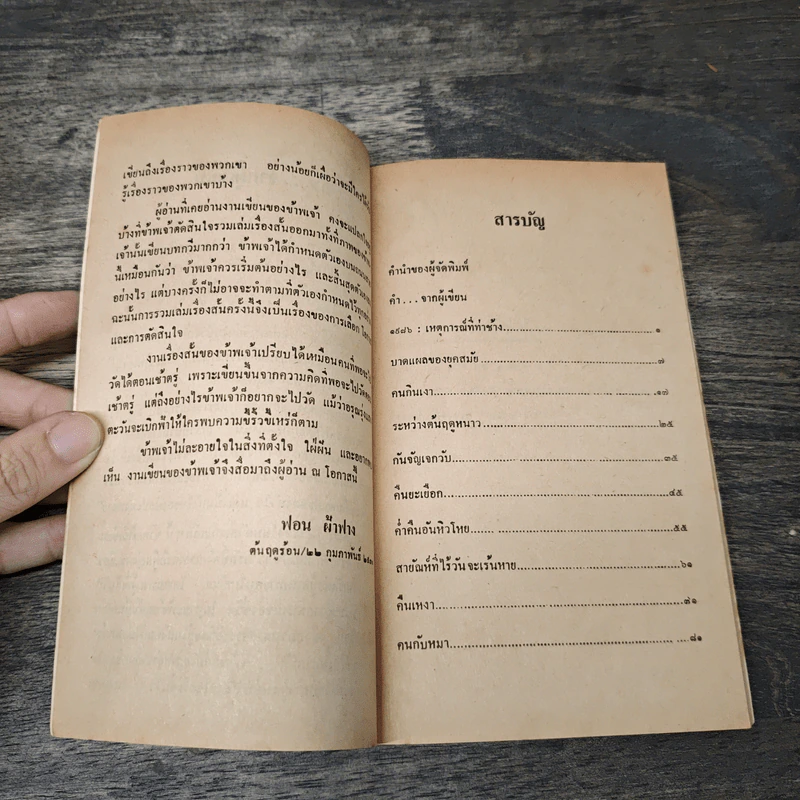 เขียนถึงเรื่องราวของพวกเขา อย่างน้อยก็เผื่อว่าจะมีใครได้
รู้เรื่องราวของพวกเขาบ้าง
ผู้อ่านที่เคยอ่านงานเขียนของข้าพเจ้า คงจะแปลกใจ
บ้างที่ข้าพเจ้าตัดสินใจรวมเล่มเรื่องสั้นออกมาทั้งที่ภาพของข้าพ
เจ้านั้นเขียนบทกวีมากกว่า ข้าพเจ้าได้กำหนดตัวเองบน
นี้เหมือนกันว่า ข้าพเจ้าควรเริ่มต้นอย่างไร และสิ้นสุดตัวเอง
อย่างไร แต่บางครั้งก็ไม่อาจจะทำตามที่ตัวเองกำหนดไว้ทุก
ฉะนั้นการรวมเล่มเรื่องสั้นครั้งนี้จึงเป็นเรื่องของการเลือก
และการตัดสินใจ
งานเรื่องสั้นของข้าพเจ้าเปรียบได้เหมือนคนที่พอจะไป
วัดได้ตอนเช้าตรู่ เพราะเขียนขึ้นจากความคิดที่พอจะไปวัดตอน
เช้าตรู่ แต่ถึงอย่างไรข้าพเจ้าก็อยากจะไปวัด แม้ว่าอรุณรุ่ง
ตะวันจะเบิกฟ้าให้ใครพบความขี้ริ้วขี้เหร่ก็ตาม
ข้าพเจ้าไม่ละอายใจในสิ่งที่ตั้งใจ ใฝ่ฝัน และอยาก
เห็น งานเขียนของข้าพเจ้าจึงสื่อมาถึงผู้อ่าน ณ โอกาสนี้
ฟอน ฝ้าฟาง
ต้นฤดูร้อน/๒๒ กุมภาพันธ์
สารบัญ
คำนำของผู้จัดพิมพ์
คำ...จากผู้เขียน
๑๙๘๖ : เหตุการณ์ที่ท่าช้าง..........๑
บาดแผลของยุคสมัย..........๗
คนกินเงา..........๑๗
ระหว่างต้นฤดูหนาว..........๒๕
กันจัญเจกวับ..........๓๕
คืนยะเยือก..........๔๕
ค่ำคืนอันหิวโหย..........๕๕
สายัณห์ที่ไร้วันจะเร้นหาย..........๖๑
คืนเหงา..........๗๑
คนกับหมา..........๘๑